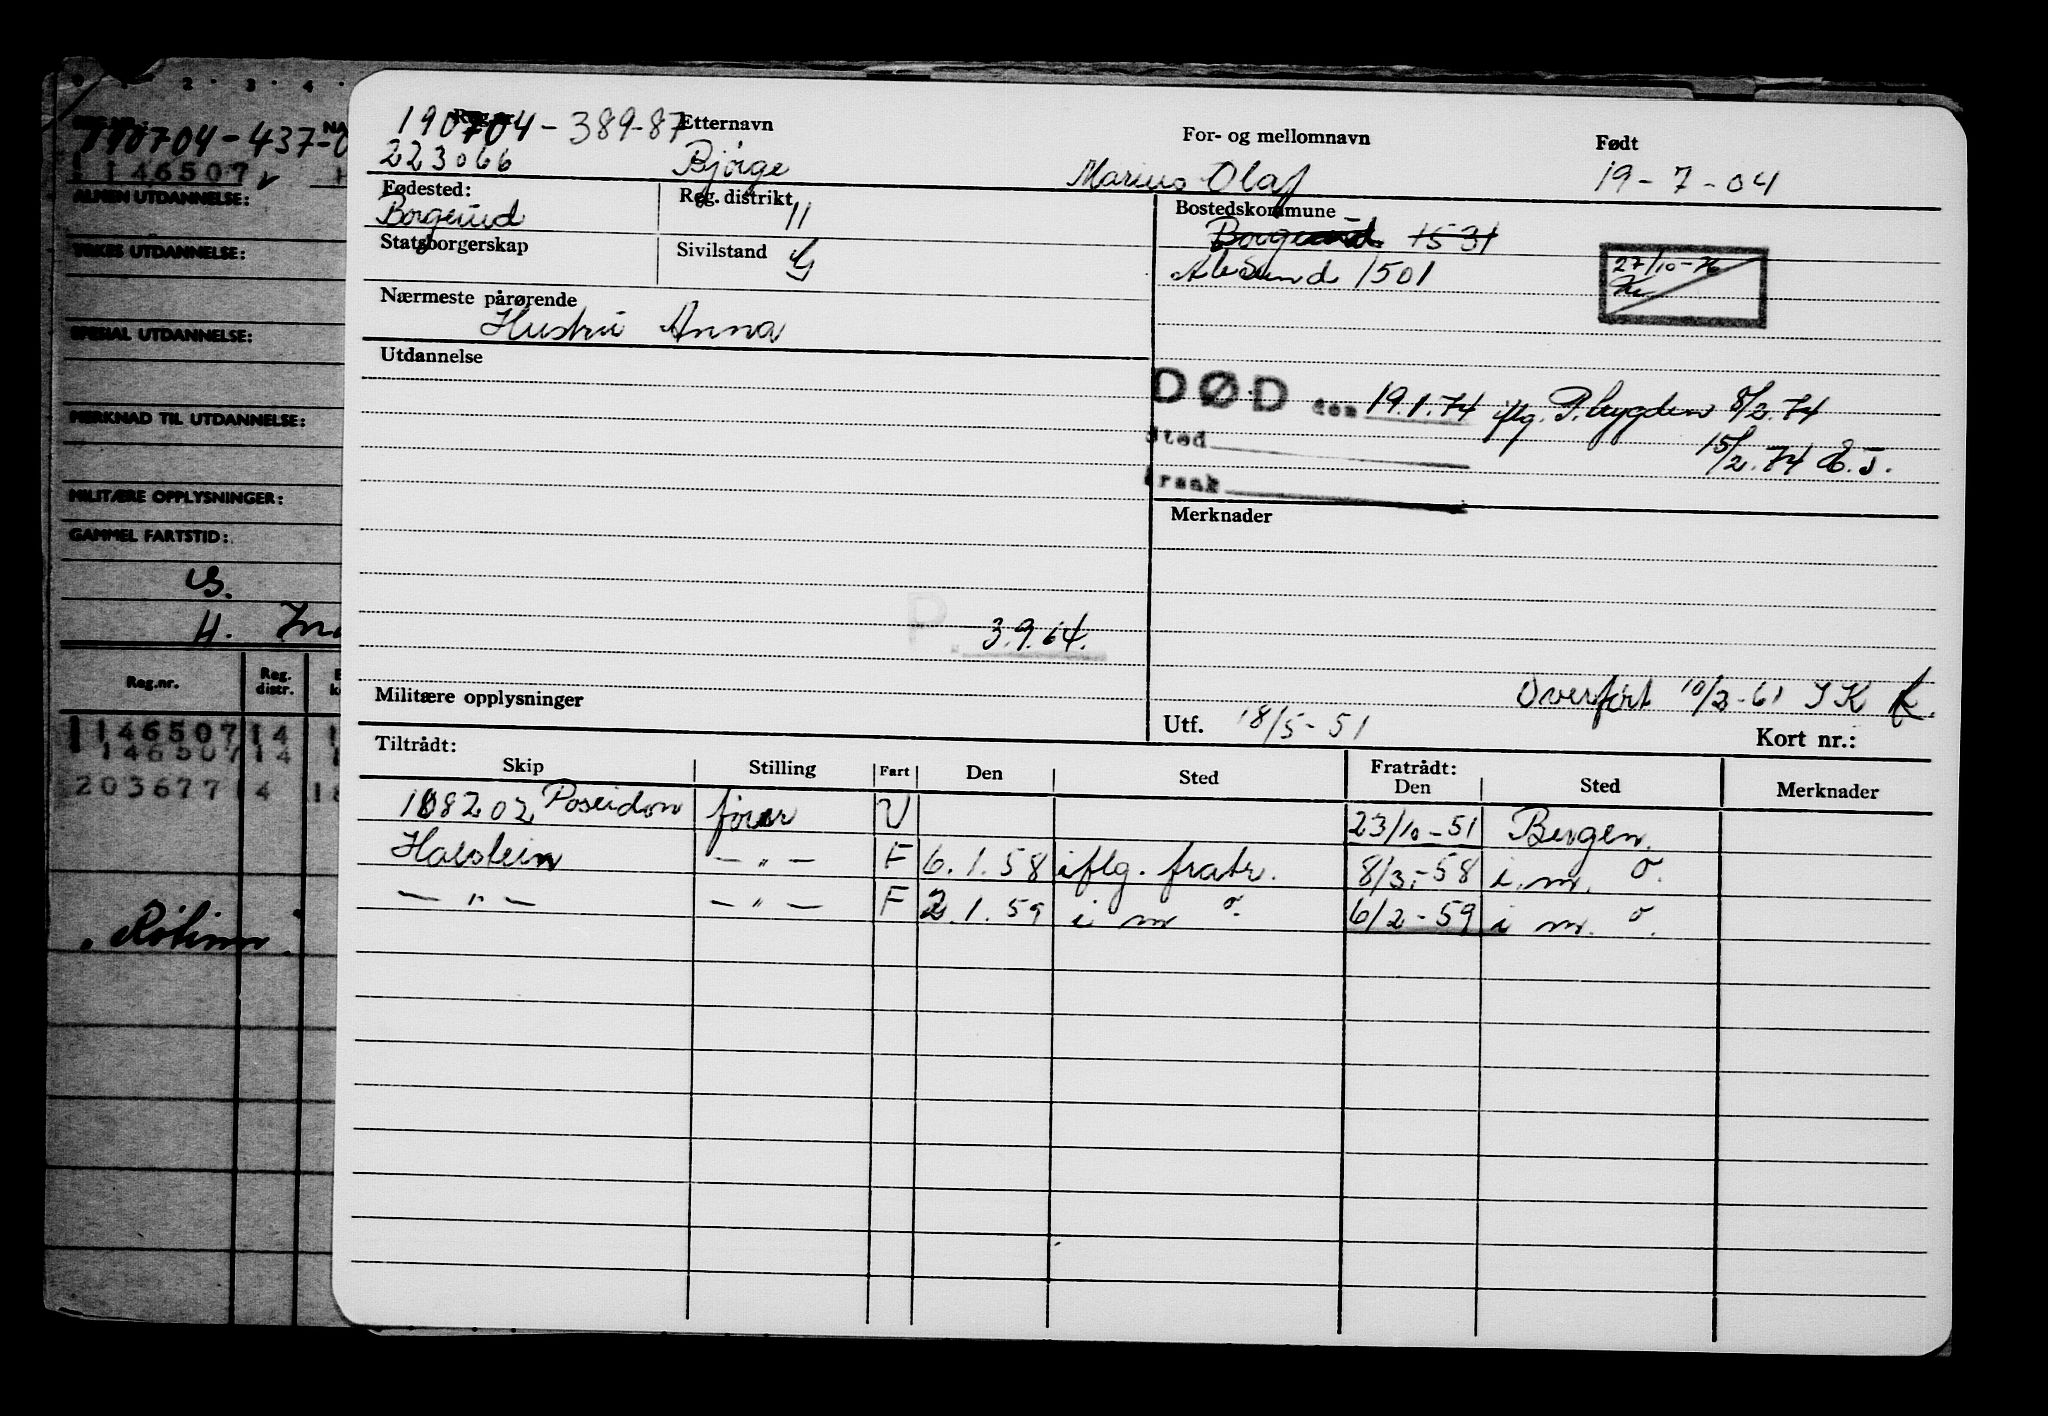 1 2 3 4
190704-437-0
146507
ALMEN UTDANNELSE:
YRKES UTDANNELSE:
SPESIAL UTDANNELSE:
MERKNAD TIL UTDANNELSE:
MILITÆRE OPPLYSNINGER:
GAMMEL FARTSTID:
H.
Reg.nr. Reg. distr.
146507 14 1
146507 14 1
203677 4 18
Reg.nr. Etternavn For- og mellomnavn Født
190704-389-87
223066 Bjørge Marius Olaf 19-7-04
Fødested: Reg. distrikt Bostedskommune
Borgund 11 Borgund 1531
Statsborgerskap Sivilstand G Ålesund 1501
27/10-76
Nærmeste pårørende
Hustru Anna
Utdannelse
DØD den 19.1.74 iflg. P.bygden 8/2.74
Sted 15/2.74 E.J.
Årsak
Merknader
P. 3.9.64.
Militære opplysninger
Overført 10/3-61 J K
Utf. 18/5-51 Kort nr.:
Tiltrådt: Fratrådt:
Skip Stilling Fart Den Sted Den Sted Merknader
108202 Poseidon fører U 23/10-51 Bergen.
Halstein —"— F 6.1.58 iflg. fratr. 8/3-58 i. m. o.
—"— —"— F 2.1.59 i m o. 6/2-59 i m. o.